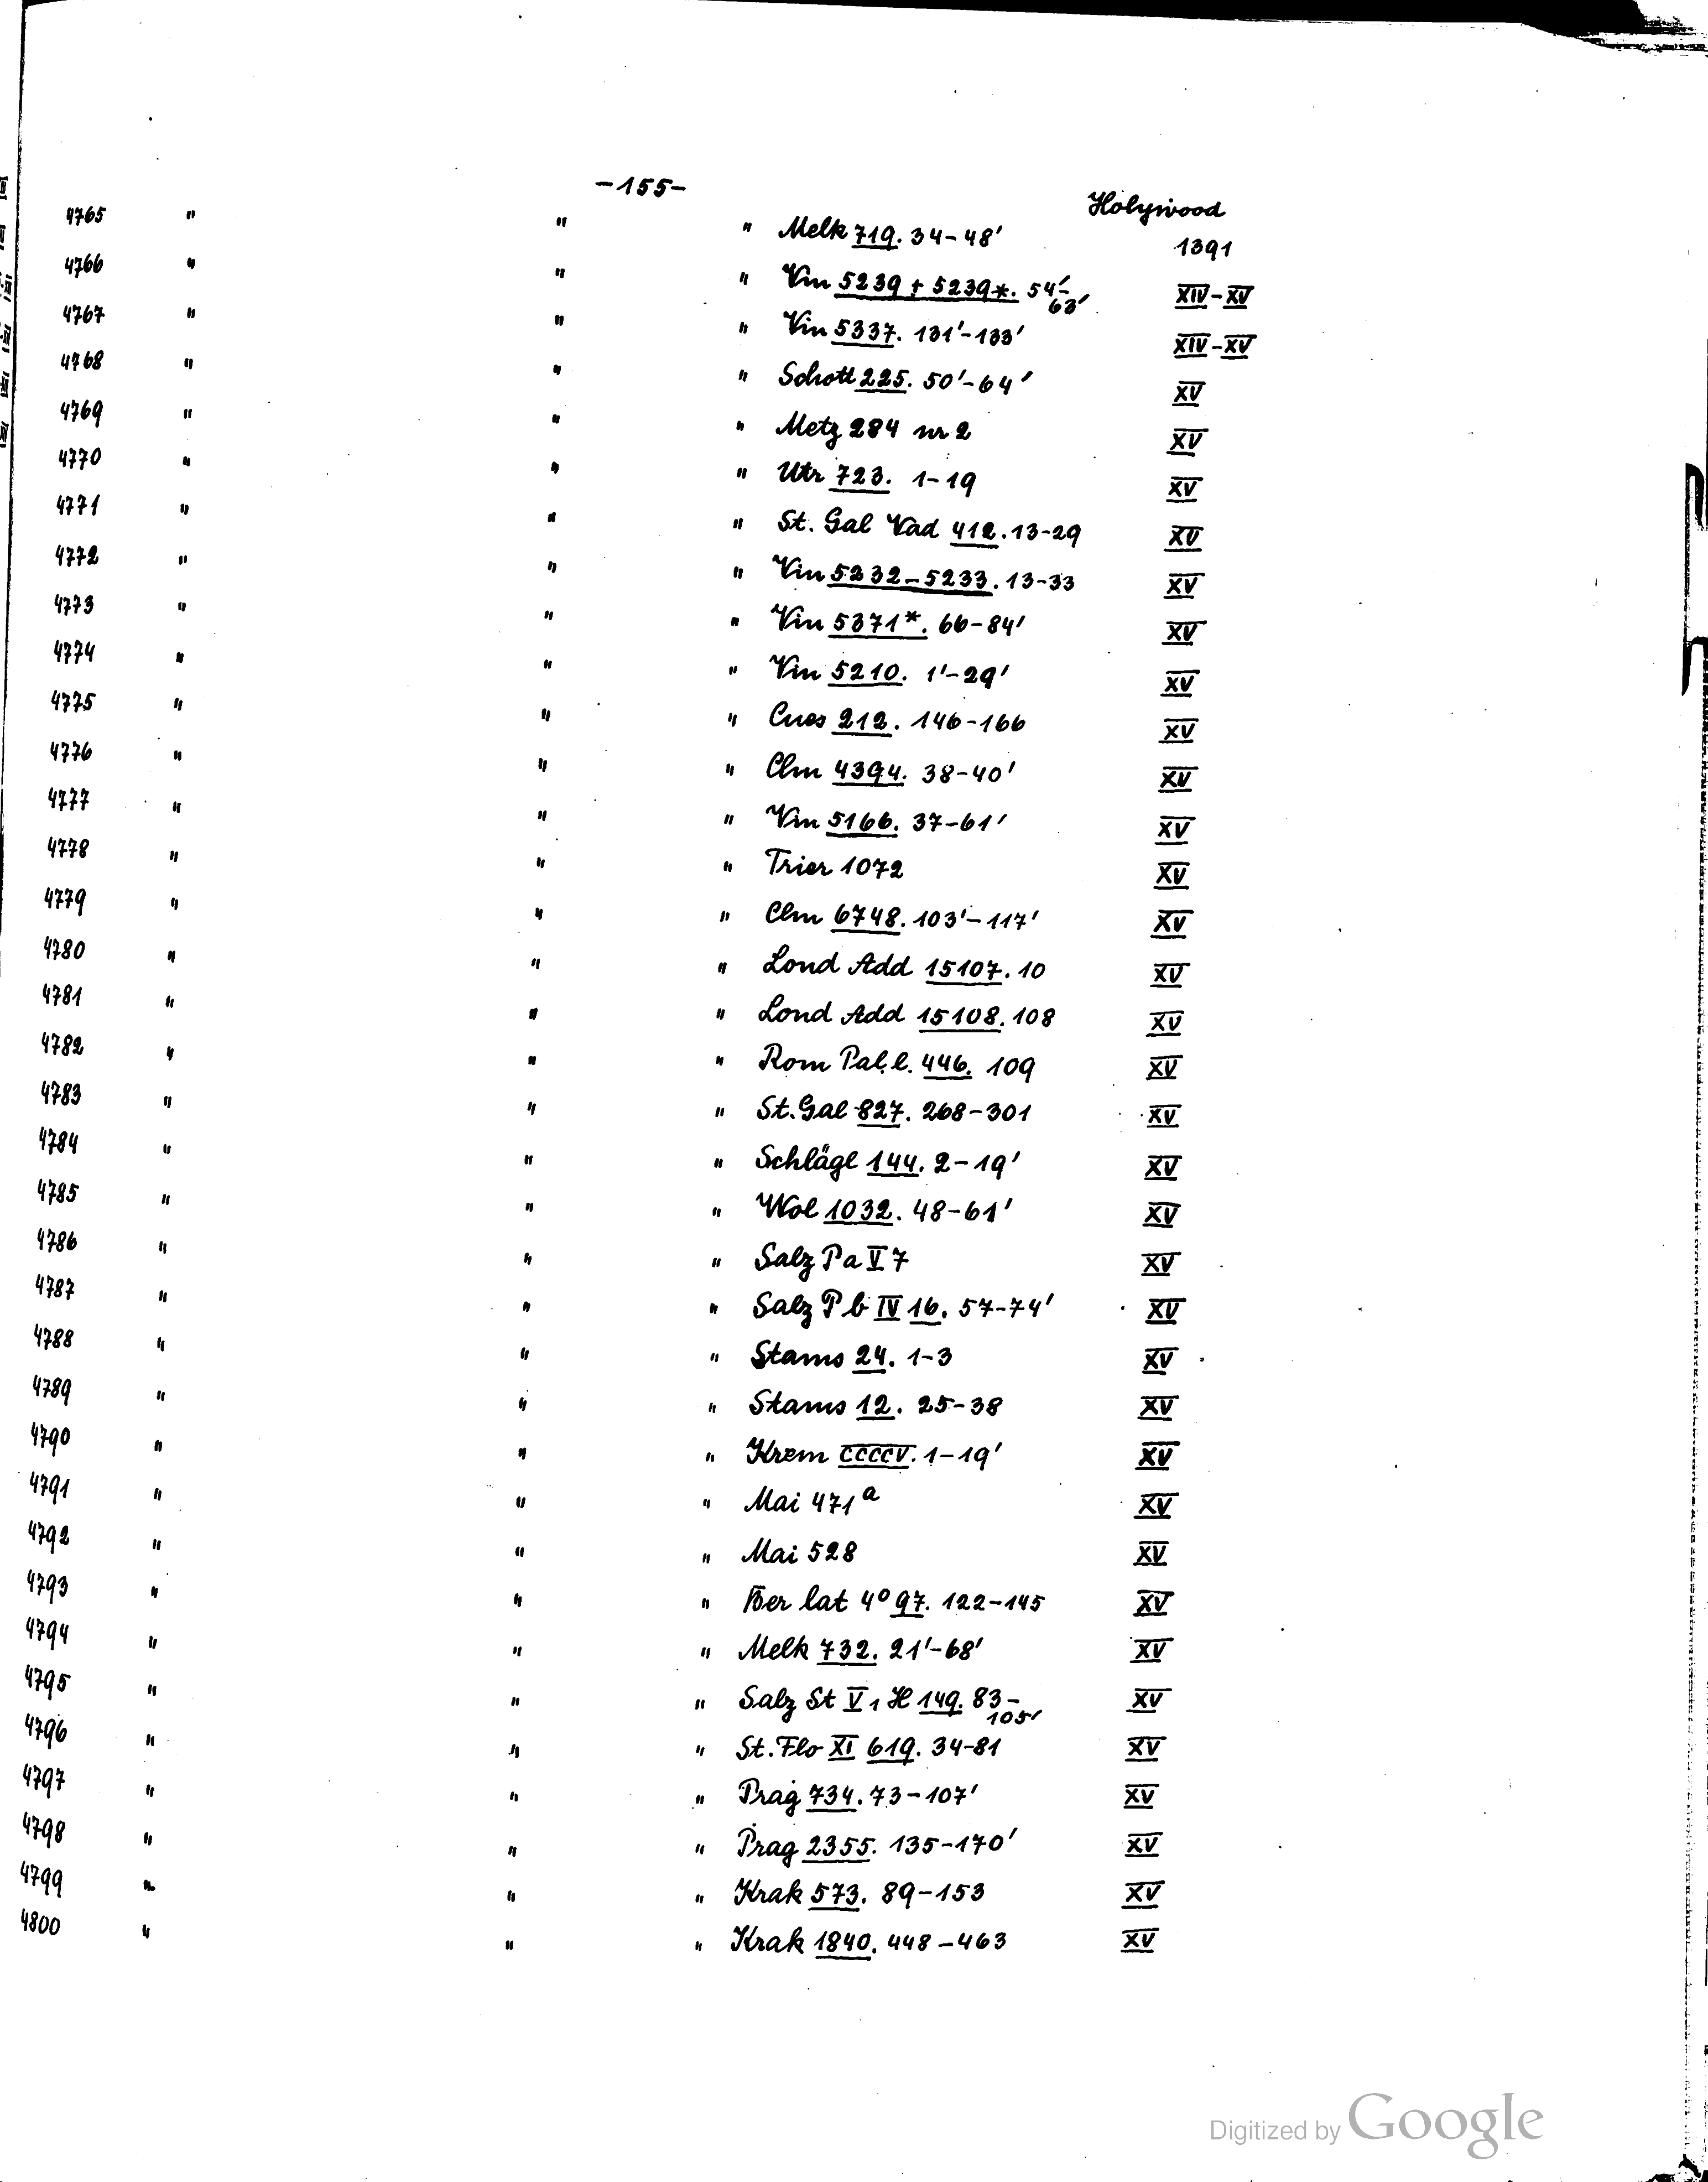 -155-
Holywood
4765 " " " Melk 719. 34-48' 1391
4766 " " " Vin 5239 + 5239*. 54'-63' XIV-XV
4767 " " " Vin 5337. 131'-133' XIV-XV
4768 " " " Schott 225. 50'-64' XV
4769 " " " Metz 284 nr 2 XV
4770 " " " Utr 723. 1-19 XV
4771 " " " St. Gal Vad 412. 13-29 XV
4772 " " " Vin 5232-5233. 13-33 XV
4773 " " " Vin 5371*. 66-84' XV
4774 " " " Vin 5210. 1'-29' XV
4775 " " " Cues 212. 146-166 XV
4776 " " " Clm 4394. 38-40' XV
4777 " " " Vin 5166. 37-61' XV
4778 " " " Trier 1072 XV
4779 " " " Clm 6748. 103'-117' XV
4780 " " " Lond Add 15107. 10 XV
4781 " " " Lond Add 15108. 108 XV
4782 " " " Rom Pal. l. 446. 109 XV
4783 " " " St. Gal 827. 268-301 XV
4784 " " " Schlägl 144. 2-19' XV
4785 " " " Wol 1032. 48-61' XV
4786 " " " Salz Pa V 7 XV
4787 " " " Salz Pb IV 16. 57-74' XV
4788 " " " Stams 24. 1-3 XV
4789 " " " Stams 12. 25-38 XV
4790 " " " Krem CCCCV. 1-19' XV
4791 " " " Mai 471a XV
4792 " " " Mai 528 XV
4793 " " " Ber lat 4° 97. 122-145 XV
4794 " " " Melk 732. 21'-68' XV
4795 " " " Salz St V 1 H 149. 83-105' XV
4796 " " " St. Flo XI 619. 34-81 XV
4797 " " " Prag 734. 73-107' XV
4798 " " " Prag 2355. 135-170' XV
4799 " " " Krak 573. 89-153 XV
4800 " " " Krak 1840. 448-463 XV
Digitized by Google